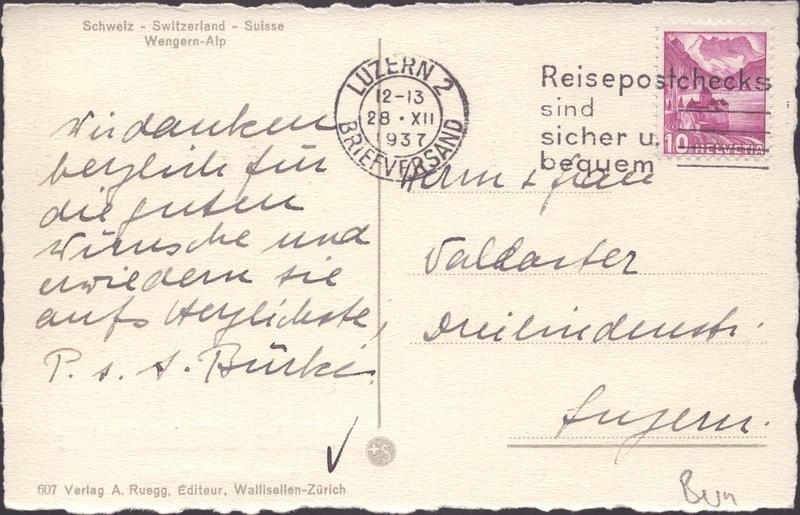 Schweiz - Switzerland - Suisse
Wengern-Alp
Wir danken
herzlich für
die guten
Wünsche und
erwiedern sie
aufs Herzlichste,
P. s. A. Bürki.
607 Verlag A. Ruegg, Editeur, Wallisellen-Zürich
LUZERN 2
12-13
28 · XII
1937
BRIEFVERSAND
Reisepostchecks
sind
sicher u.
bequem
10 HELVETIA
Herrn + Frau
Valdaster
Dreilindenstr.
Luzern.